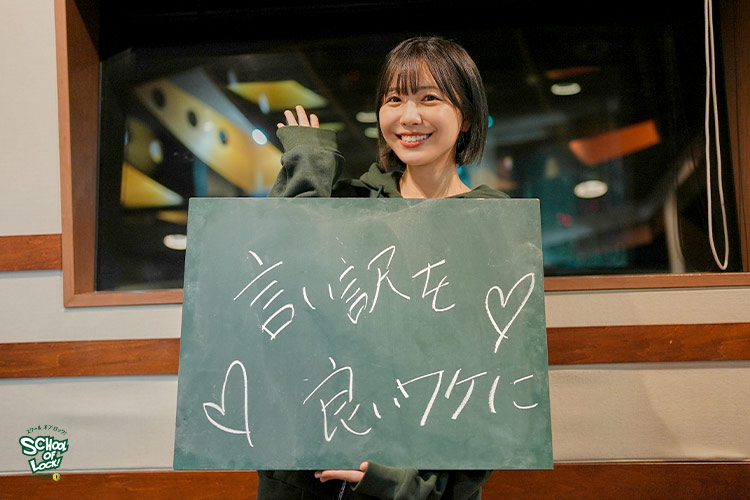 言い訳を
良いワケに
スクール オブ ロック!
SCHOOL
OF
LOCK!